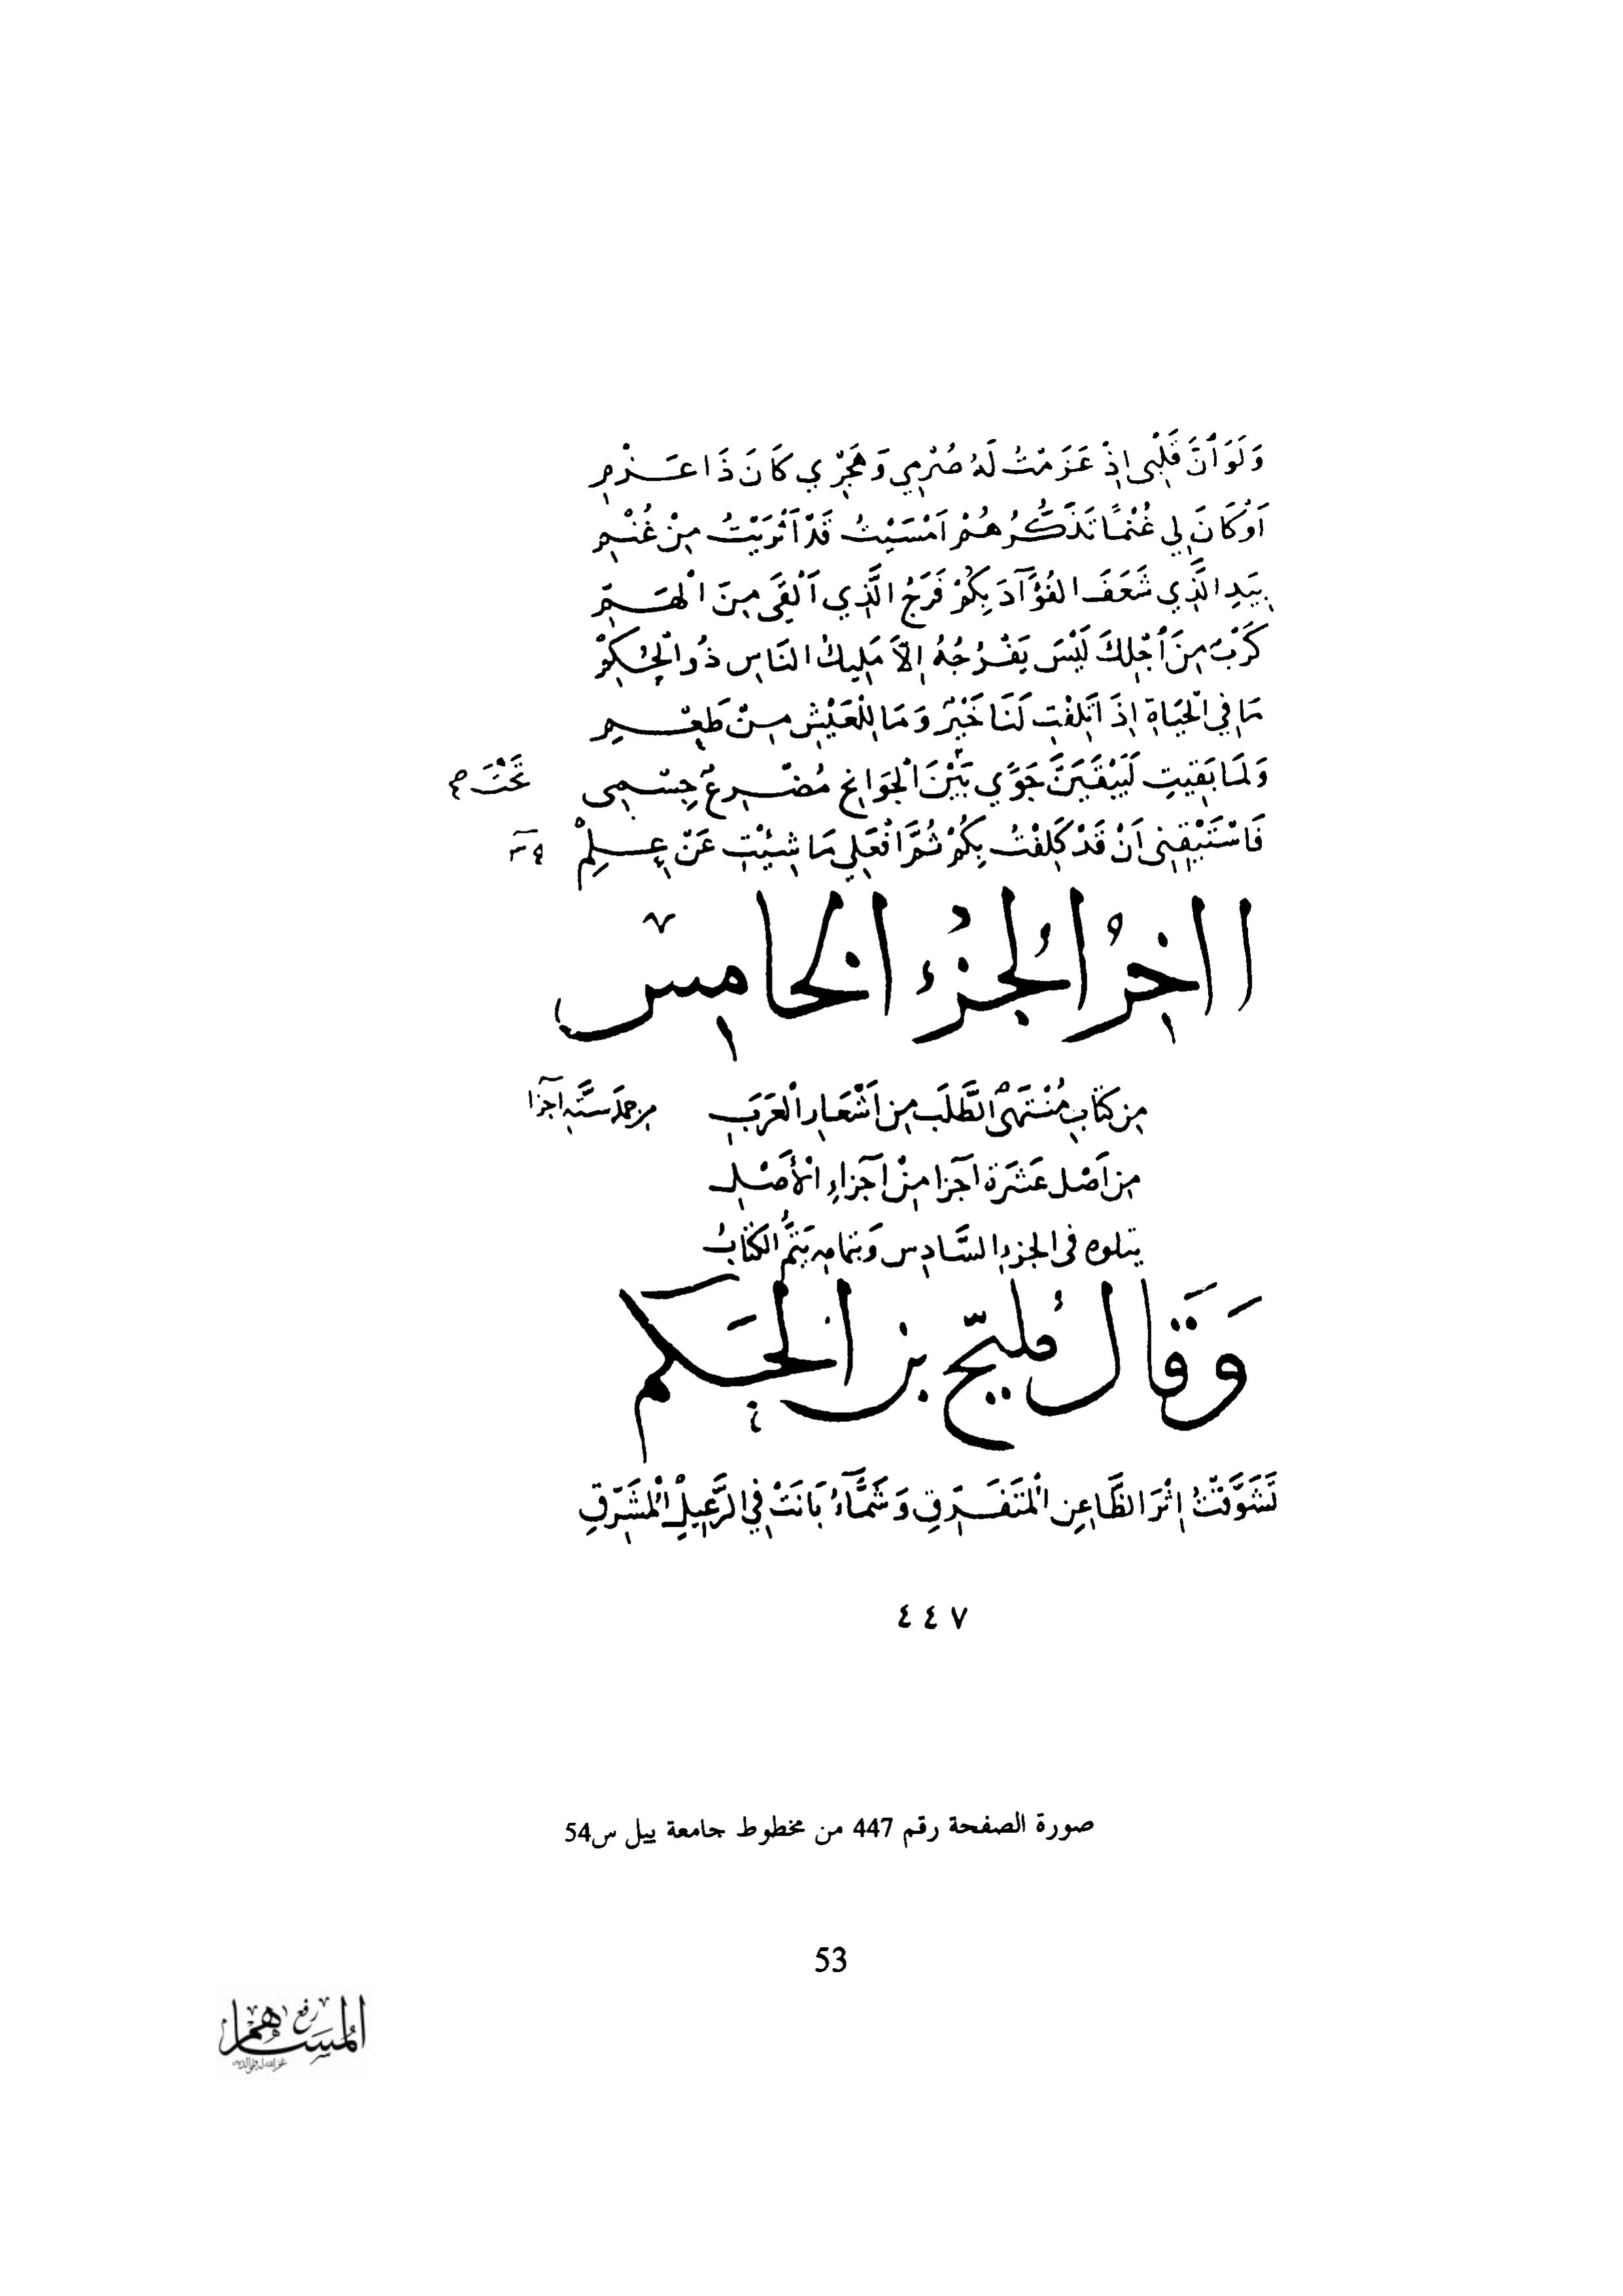 وَلَوَ أَنَّ قَلْبِى إِذْ عَزَمْتُ لَهُ صُرْمِي وَهَجْرِي كَانَ ذَا عَزْمِ
أَوْ كَانَ لِي غُنْمًا تَذَكُّرُهُمْ أَمْسَيْتُ قَدْ أَثْرَيْتُ مِنْ غُنْمِ
بِيَدِ الَّذِي شَعَفَ الفُؤَآدَ بِكُمْ فَرَجُ الَّذِي أَلْقَى مِنَ الْهَمِّ
كَرْبٌ مِنَ أجْلِكَ لَيْسَ يَفْرُجُهُ إِلاَّ مَلِيكُ النَاسِ ذُو الْحُكْمِ
مَا فِي الْحَيَاةِ إِذَا تَلِفْتِ لَنَا خَيْرٌ وَمَا لِلْعَيْشِ مِنْ طَعْمِ
وَلَمَا بَقِيتِ لَيَبْقَيَنَّ جَوًي بَيْنَ الْجَوَانِحِ مُضْرِعٌ جِسْمِى تَحْتَ
فَاسْتَيْقِنِى أَنْ قَدْ كَلِفْتُ بِكُمْ ثُمَّ افْعَلِي مَا شِيْتِ عَنْ عِلْمِ
ااخِرُ الجُزْءِ الخَامِسْ
مِن كِتَابِ مُنْتَهَى الطَّلَبِ مِن أَشْعَارِ الْعَرَبِ من جملة ستَّةِ أجزا
مِن أَصْل عَشَرَة أجزا مِنْ أَجْزَاءِ الأَصْلِ
يتلوه فى الجزء السَّادِس وَبتمامه يَتمُّ الكتابُ
وَقَالَ مُلَيْح بن الحَكَم
تَشَوَّفْتُ إِثْرَ الظَّاعِنِ الْمُتَفَرِّقِ وَشَمَّآءُ بَانَتْ فِي الرَّعِيلِ الْمُشَرِّقِ
٤٤٧
صورة الصفحة رقم 447 من مخطوط جامعة ييل س54
53
رفع
المساهم
غفر الله له ولوالديه